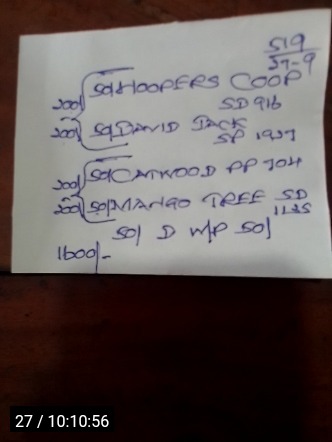 519
37-9
200/ 50/ HOOPERS COOP
SD 916
200/ 50/ DAVID JACK
SP 1937
200/ 50/ CATWOOD PP 704
200/ 50/ MANGO TREE SD
1125
50/ D W/P 50/
1600/-
27 / 10:10:56